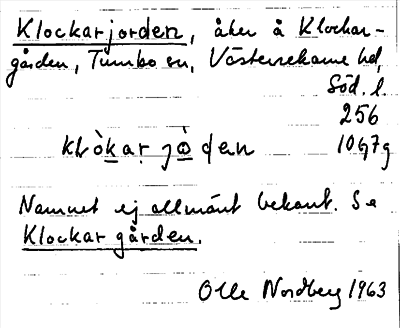 Klockarjorden, åker å Klockar-
gården, Tumbo sn, Västerrekarne hd,
Söd. l.
256
10G7g
klòkar jòden
Namnet ej allmänt bekant. Se
Klockargården.
Olle Nordberg 1963